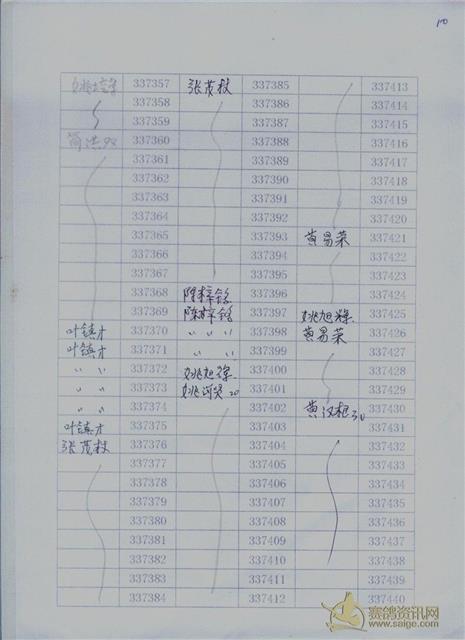 110
337357 张茂枝 337385 337413
337358 337386 337414
337359 337387 337415
337360 337388 337416
337361 337389 337417
337362 337390 337418
337363 337391 337419
337364 337392 337420
337365 337393 黄易荣 337421
337366 337394 337422
337367 337395 337423
337368 陈梓铭 337396 337424
337369 陈梓铭 337397 姚旭辉 337425
叶镇才 337370 〃 〃 〃 337398 黄易荣 337426
叶镇才 337371 〃 〃 337399 337427
〃 〃 337372 姚旭辉 337400 337428
〃 〃 337373 姚 20 337401 337429
〃 〃 337374 337402 黄汉 30 337430
叶镇才 337375 337403 337431
张茂枝 337376 337404 337432
337377 337405 337433
337378 337406 337434
337379 337407 337435
337380 337408 337436
337381 337409 337437
337382 337410 337438
337383 337411 337439
337384 337412 337440
赛鸽资讯网
www.saige.com